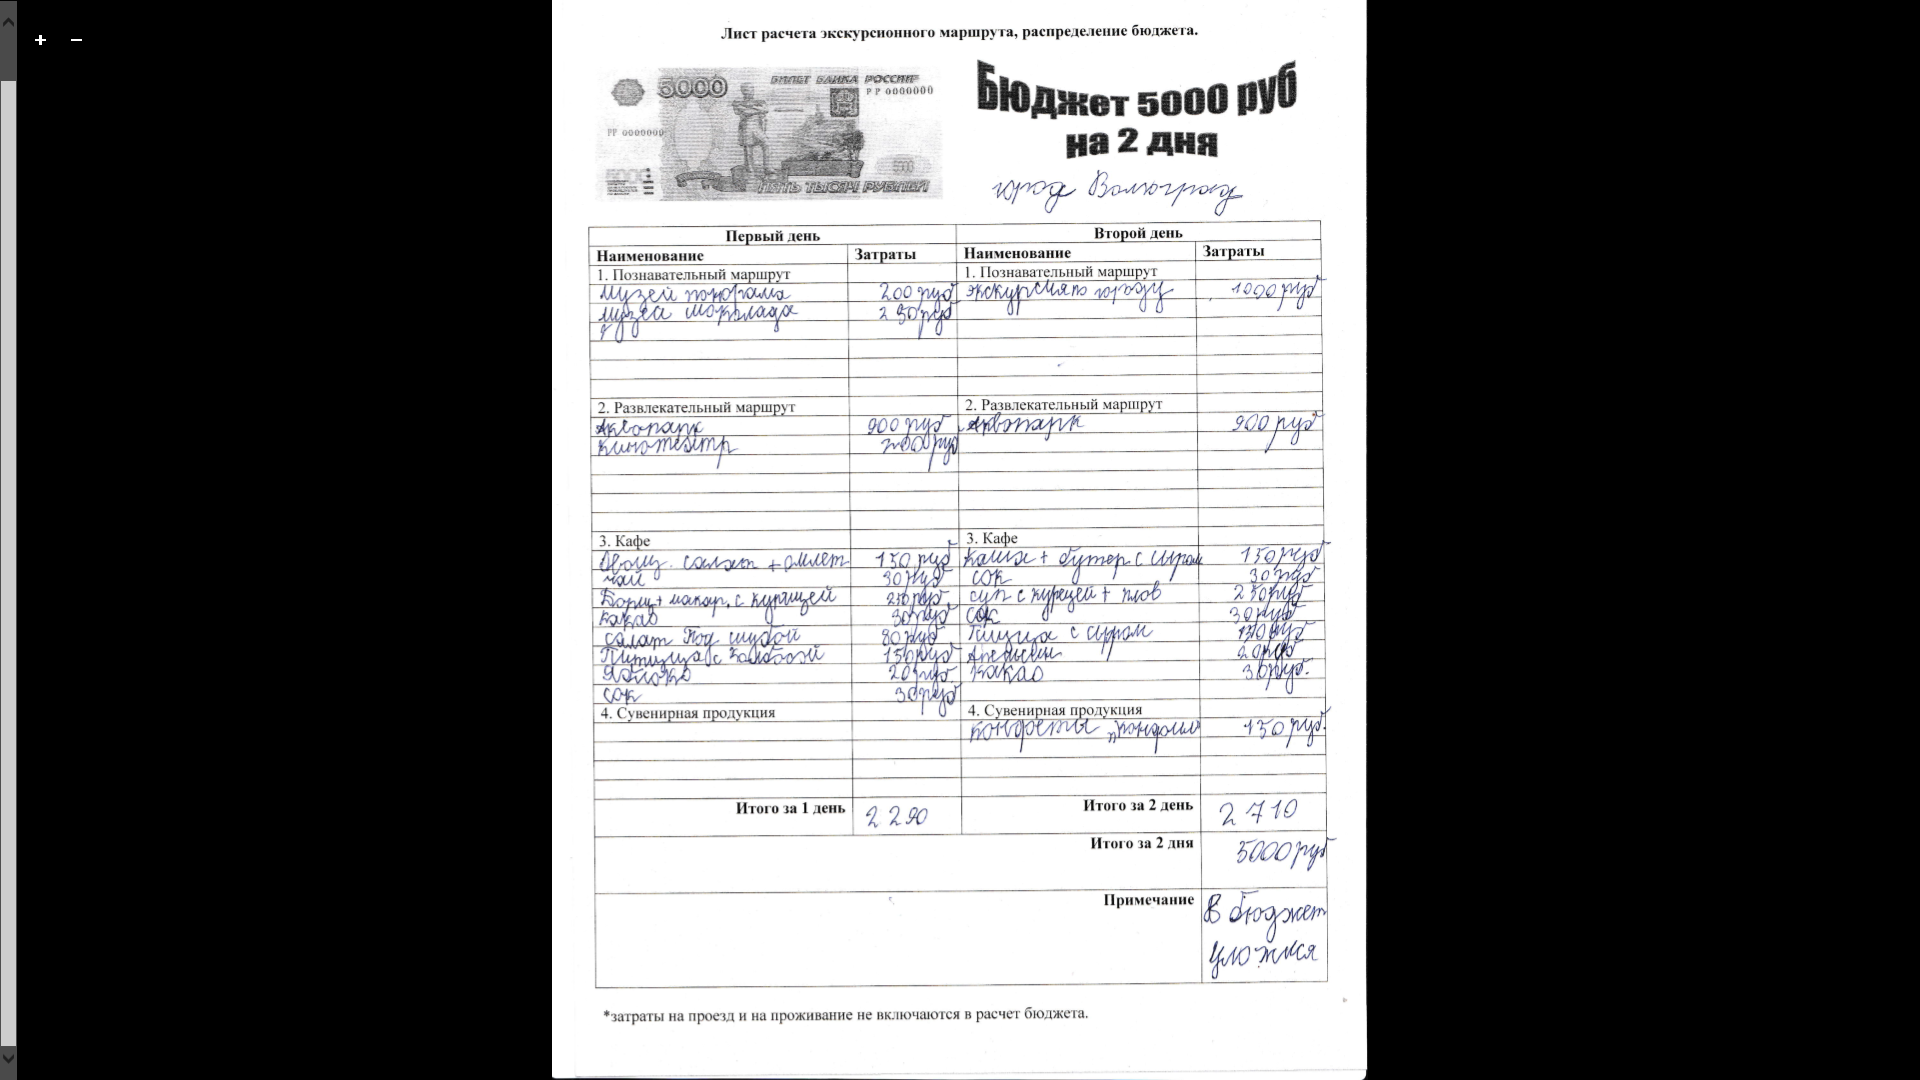 Лист расчета экскурсионного маршрута, распределение бюджета.
5000
БИЛЕТ БАНКА РОССИИ
РР 0000000
РР 0000000
5000
5000
ПЯТЬ ТЫСЯЧ РУБЛЕЙ
Бюджет 5000 руб
на 2 дня
город Волгоград
Первый день Второй день
Наименование Затраты Наименование Затраты
1. Познавательный маршрут 1. Познавательный маршрут
Музей панорама 200 руб экскурсия по городу 1000 руб
музей шоколада 250 руб
2. Развлекательный маршрут 2. Развлекательный маршрут
Аквопарк 900 руб Аквопарк 900 руб
кинотеатр 200 руб
3. Кафе 3. Кафе
Овощ. салат + омлет 150 руб Каша + бутер с сыром 150 руб
чай 30 руб сок 30 руб
Борщ + макар. с курицей 250 руб суп с курецей + плов 250 руб
какао 30 руб сок 30 руб
салат Под шубой 80 руб Пицца с сыром 150 руб
Питцица с колбосой 150 руб Апельсин 20 руб
Яблоко 20 руб. какао 30 руб.
сок 30 руб
4. Сувенирная продукция 4. Сувенирная продукция
конфеты 150 руб.
Итого за 1 день 2290 Итого за 2 день 2710
Итого за 2 дня 5000 руб
Примечание В бюджет
уложися
*затраты на проезд и на проживание не включаются в расчет бюджета.